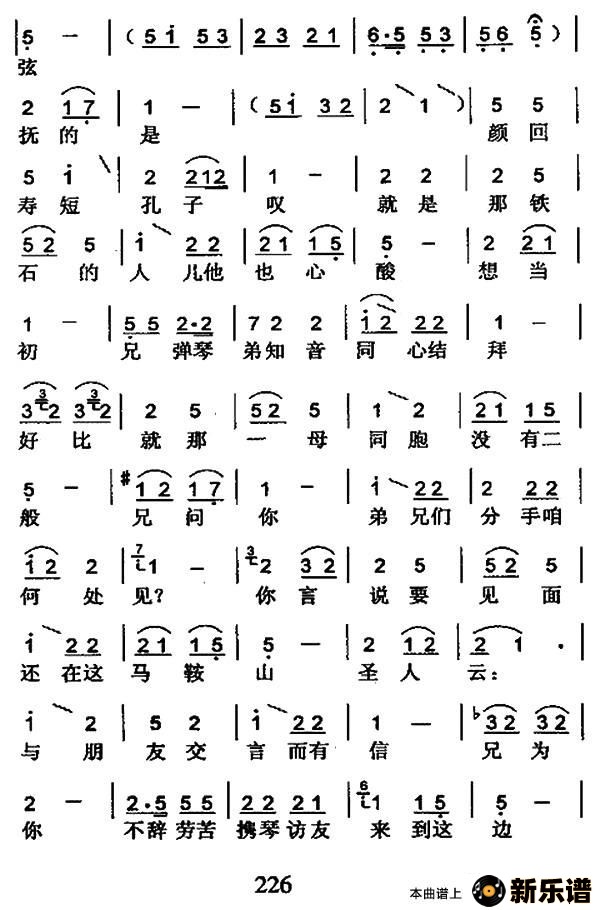 5 — ( 5 i 5 3 | 2 3 2 1 | 6 · 5 5 3 | 5 6 5 )
弦
2 1 7 | 1 — | ( 5 i 3 2 | 2 1 ) | 5 5
抚 的 是 颜 回
5 i | 2 2 1 2 | 1 — | 2 2 | 2 5
寿 短 孔 子 叹 就 是 那 铁
5 2 5 | i 2 2 | 2 1 1 5 | 5 — | 2 2 1
石 的 人 儿他 也 心 酸 想 当
1 — | 5 5 2 · 2 | 7 2 2 | i 2 2 2 | 1 —
初 兄 弹琴 弟知 音 同 心结 拜
3 3 2 3 3 2 | 2 5 | 5 2 5 | 1 2 | 2 1 1 5
好 比 就 那 一 母 同 胞 没 有二
5 — | #1 2 1 7 | 1 — | i 2 2 | 2 2 2
般 兄 问 你 弟 兄们 分 手咱
i 2 2 | 7 i 1 — | 3 2 3 2 | 2 5 | 5 2 5
何 处 见? 你 言 说 要 见 面
i 2 2 | 2 1 1 5 | 5 — | 2 1 2 | 2 1 ·
还 在这 马 鞍 山 圣 人 云:
i 2 | 5 2 | i 2 2 | 1 — | ♭3 2 3 2
与 朋 友 交 言 而有 信 兄 为
2 — | 2 · 5 5 5 | 2 2 2 1 | 6 i 1 1 5 | 5 —
你 不辞 劳苦 携琴 访友 来 到这 边
226
本曲谱上 新乐谱